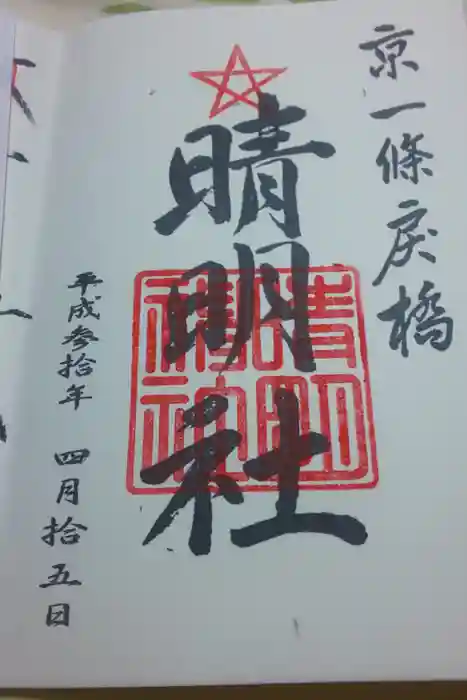 京一條戻橋
晴明社
晴明
神社
平成参拾年 四月拾五日